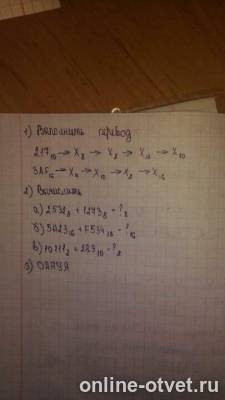 1) Выполнить перевод
217₁₀ → X₈ → X₂ → X₁₆ → X₁₀
3A5₁₆ → X₄ → X₁₀ → X₂ → X₁₆
2) Вычислить
а) 2532₈ + 1273₈ = ?₈
б) 5A23₁₆ + F534₁₆ = ?₁₆
в) 10111₂ + 283₁₀ = ?₂
3)
online-otvet.ru